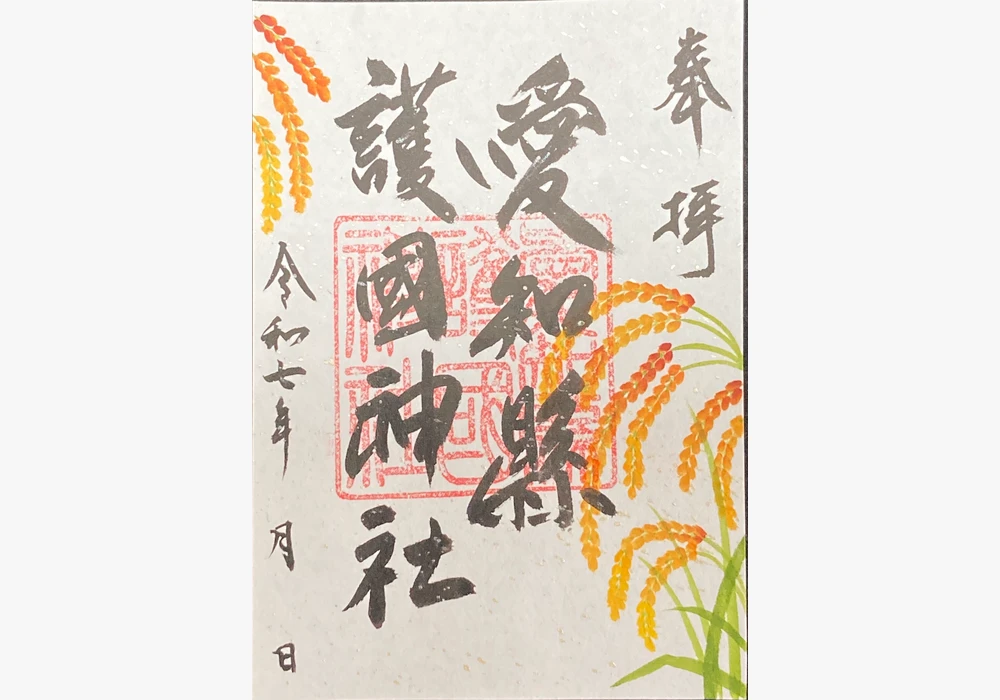 奉拝
愛知縣
護國神社
令和七年 月 日